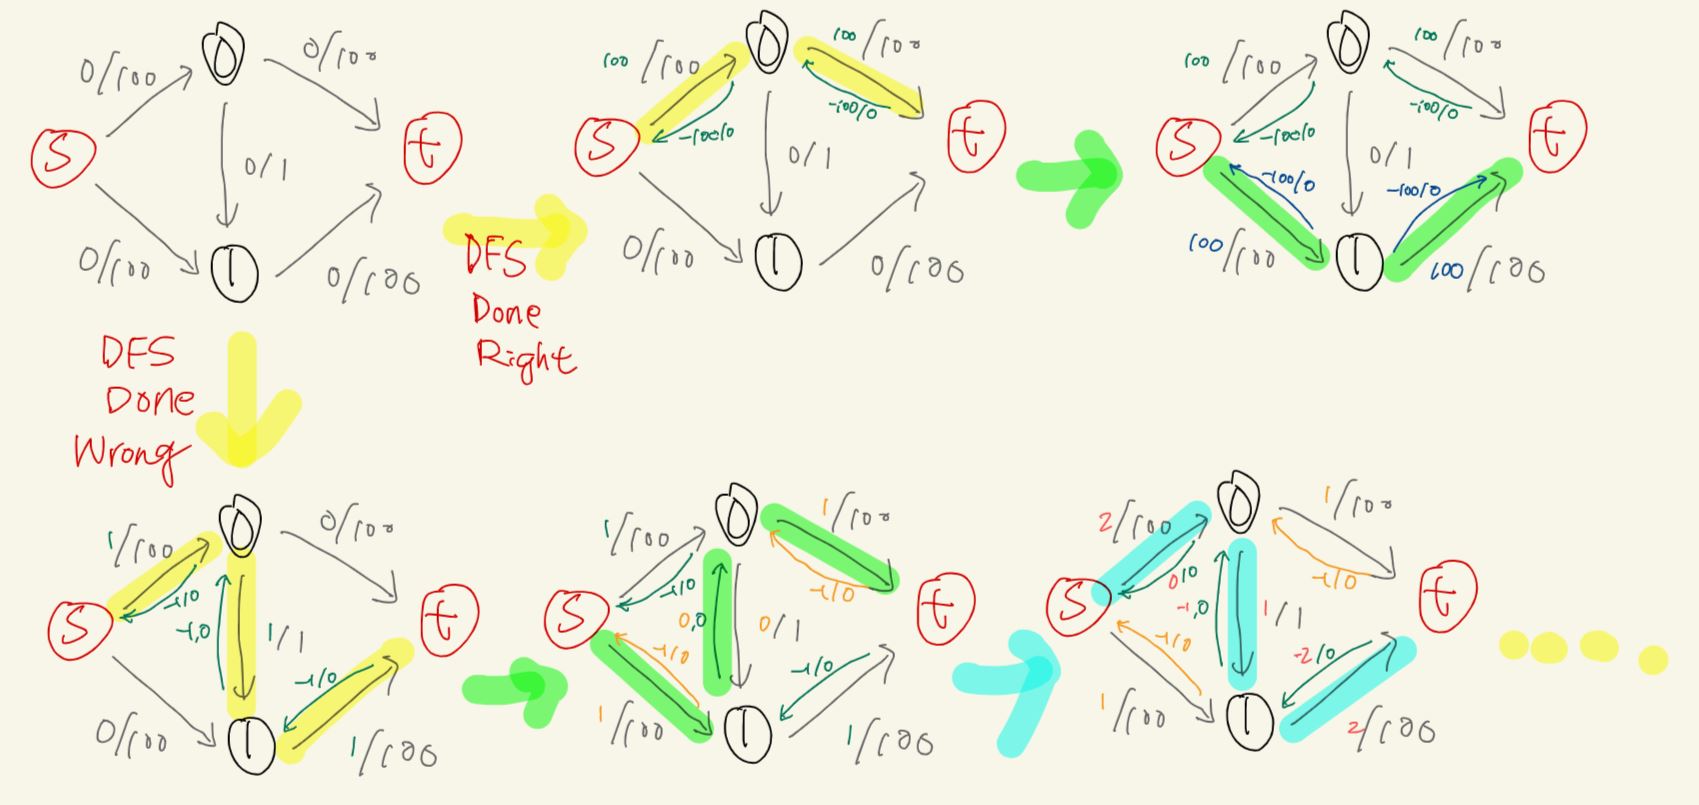 0/100
0
0/100
S
t
0/1
0/100
1
0/100
DFS
Done
Right
100/100
0
100/100
-100/0
-100/0
S
t
0/1
0/100
1
0/100
100/100
0
100/100
-100/0
-100/0
S
t
0/1
-100/0
-100/0
100/100
1
100/100
DFS
Done
Wrong
1/100
0
0/100
-1/0
S
t
-1,0
1/1
-1/0
0/100
1
1/100
1/100
0
1/100
-1/0
-1/0
S
t
0,0
0/1
-1/0
-1/0
1/100
1
1/100
2/100
0
1/100
0/0
-1/0
S
t
-1,0
1/1
-1/0
-2/0
1/100
1
2/100